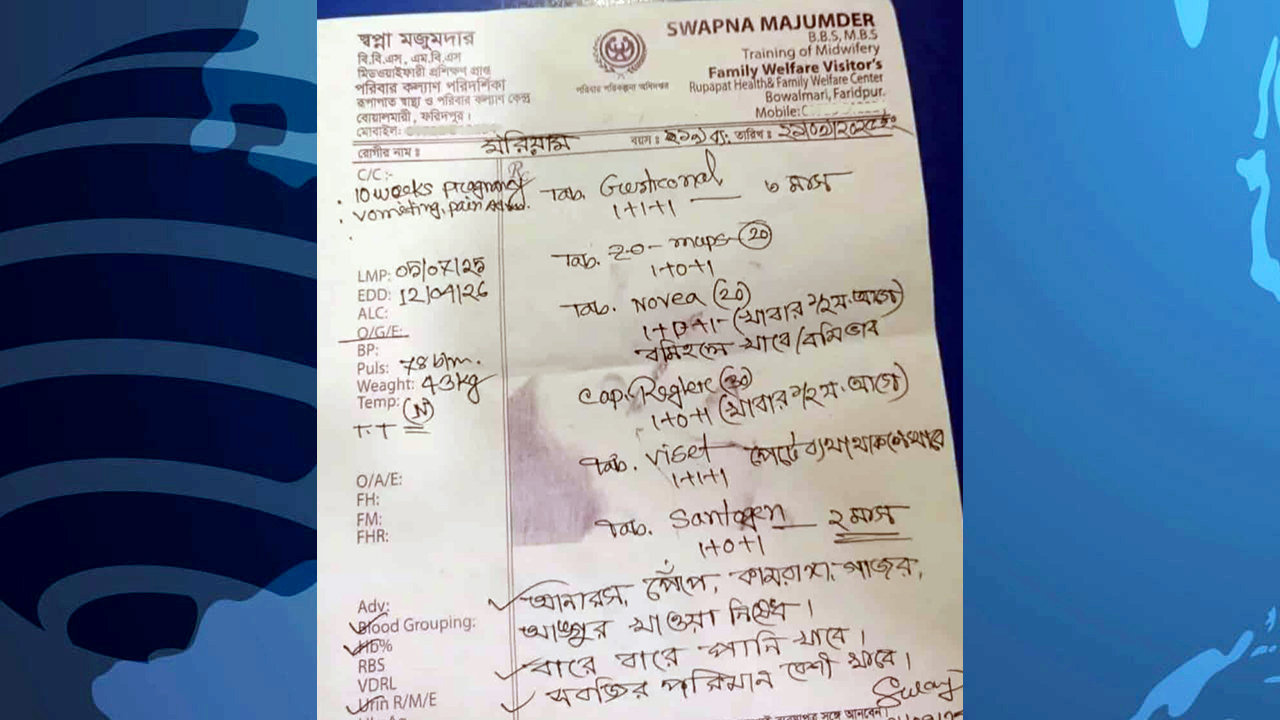 স্বপ্না মজুমদার
বি.বি.এস, এম.বি.এস
মিডওয়াইফারী প্রশিক্ষণ প্রাপ্ত
পরিবার কল্যাণ পরিদর্শিকা
রূপাপাত স্বাস্থ্য ও পরিবার কল্যাণ কেন্দ্র
বোয়ালমারী, ফরিদপুর।
মোবাইল:
পরিবার পরিকল্পনা অধিদপ্তর
SWAPNA MAJUMDER
B.B.S, M.B.S
Training of Midwifery
Family Welfare Visitor's
Rupapat Health& Family Welfare Center
Bowalmari, Faridpur.
Mobile:
রোগীর নাম : মরিয়াম বয়স : তারিখ :
C/C :-
10 weeks pregnancy
vomiting, pain
LMP: 05/07/25
EDD: 12/04/26
ALC:
O/G/E:
BP:
Puls: 78 b/m.
Weaght: 43kg
Temp: (N)
T.T
O/A/E:
FH:
FM:
FHR:
Adv:
Blood Grouping:
Hb%
RBS
VDRL
Urin R/M/E
Rx
Tab. Gestronal
1+1+1 — ৩ মাস
Tab. 20- maps (20)
1+0+1
Tab. Novea (20)
1+0+1- (খাবার ১/২ ঘ. আগে)
বমি হলে খাবে/বমি ভাব
Cap. (30)
1+0+1 (খাবার ১/২ ঘ. আগে)
Tab. Viset পেটে ব্যথা থাকলে খাবে
1+1+1
Tab. Santogen — ২ মাস
1+0+1
আনারস, পেঁপে, কামরাঙ্গা, গাজর,
আঙ্গুর খাওয়া নিষেধ।
বারে বারে পানি খাবে।
সবজির পরিমান বেশী খাবে।